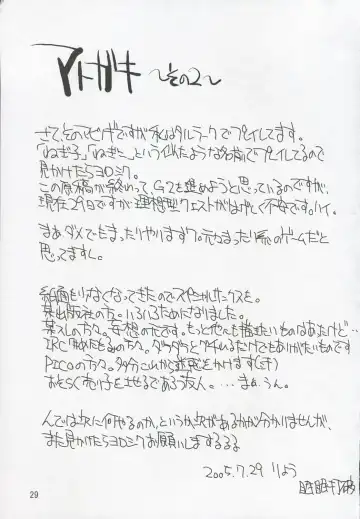 アトガキ 〜その2〜
さて、そのマビノギですが私はタルラークでプレイしてます。
「ねぎ子」「ねぎこ」という似たような名前でプレイしてるので
見かけたらヨロシク。
この原稿が終わって、G2を進めようと思っているのですが、
現在29日ですが理想型クエストがはげしく不安です。ハイ。
まぁダメでもまったりやりますワ。元々まったり系のゲームだと
思ってますし。
紙面もりなくなってきたのでスペシャルサンクスを。
某出版社の方。いろいろためになりました。
某スレの方々。妄想の元です。もっと他にも描きたいものはあったけど…
IRC 方々。ダラダラと だけでもありがたいものです
PICOの方々。多分これから迷惑をかけます(汗)
おそらく売り子をさせるであろう友人。…まぁ、うん。
んでは次に何やるのか、というか次があるかが分かりませんが、
また見かけたらヨロシクお願いしまするるる
2005.7.29 りょう
29